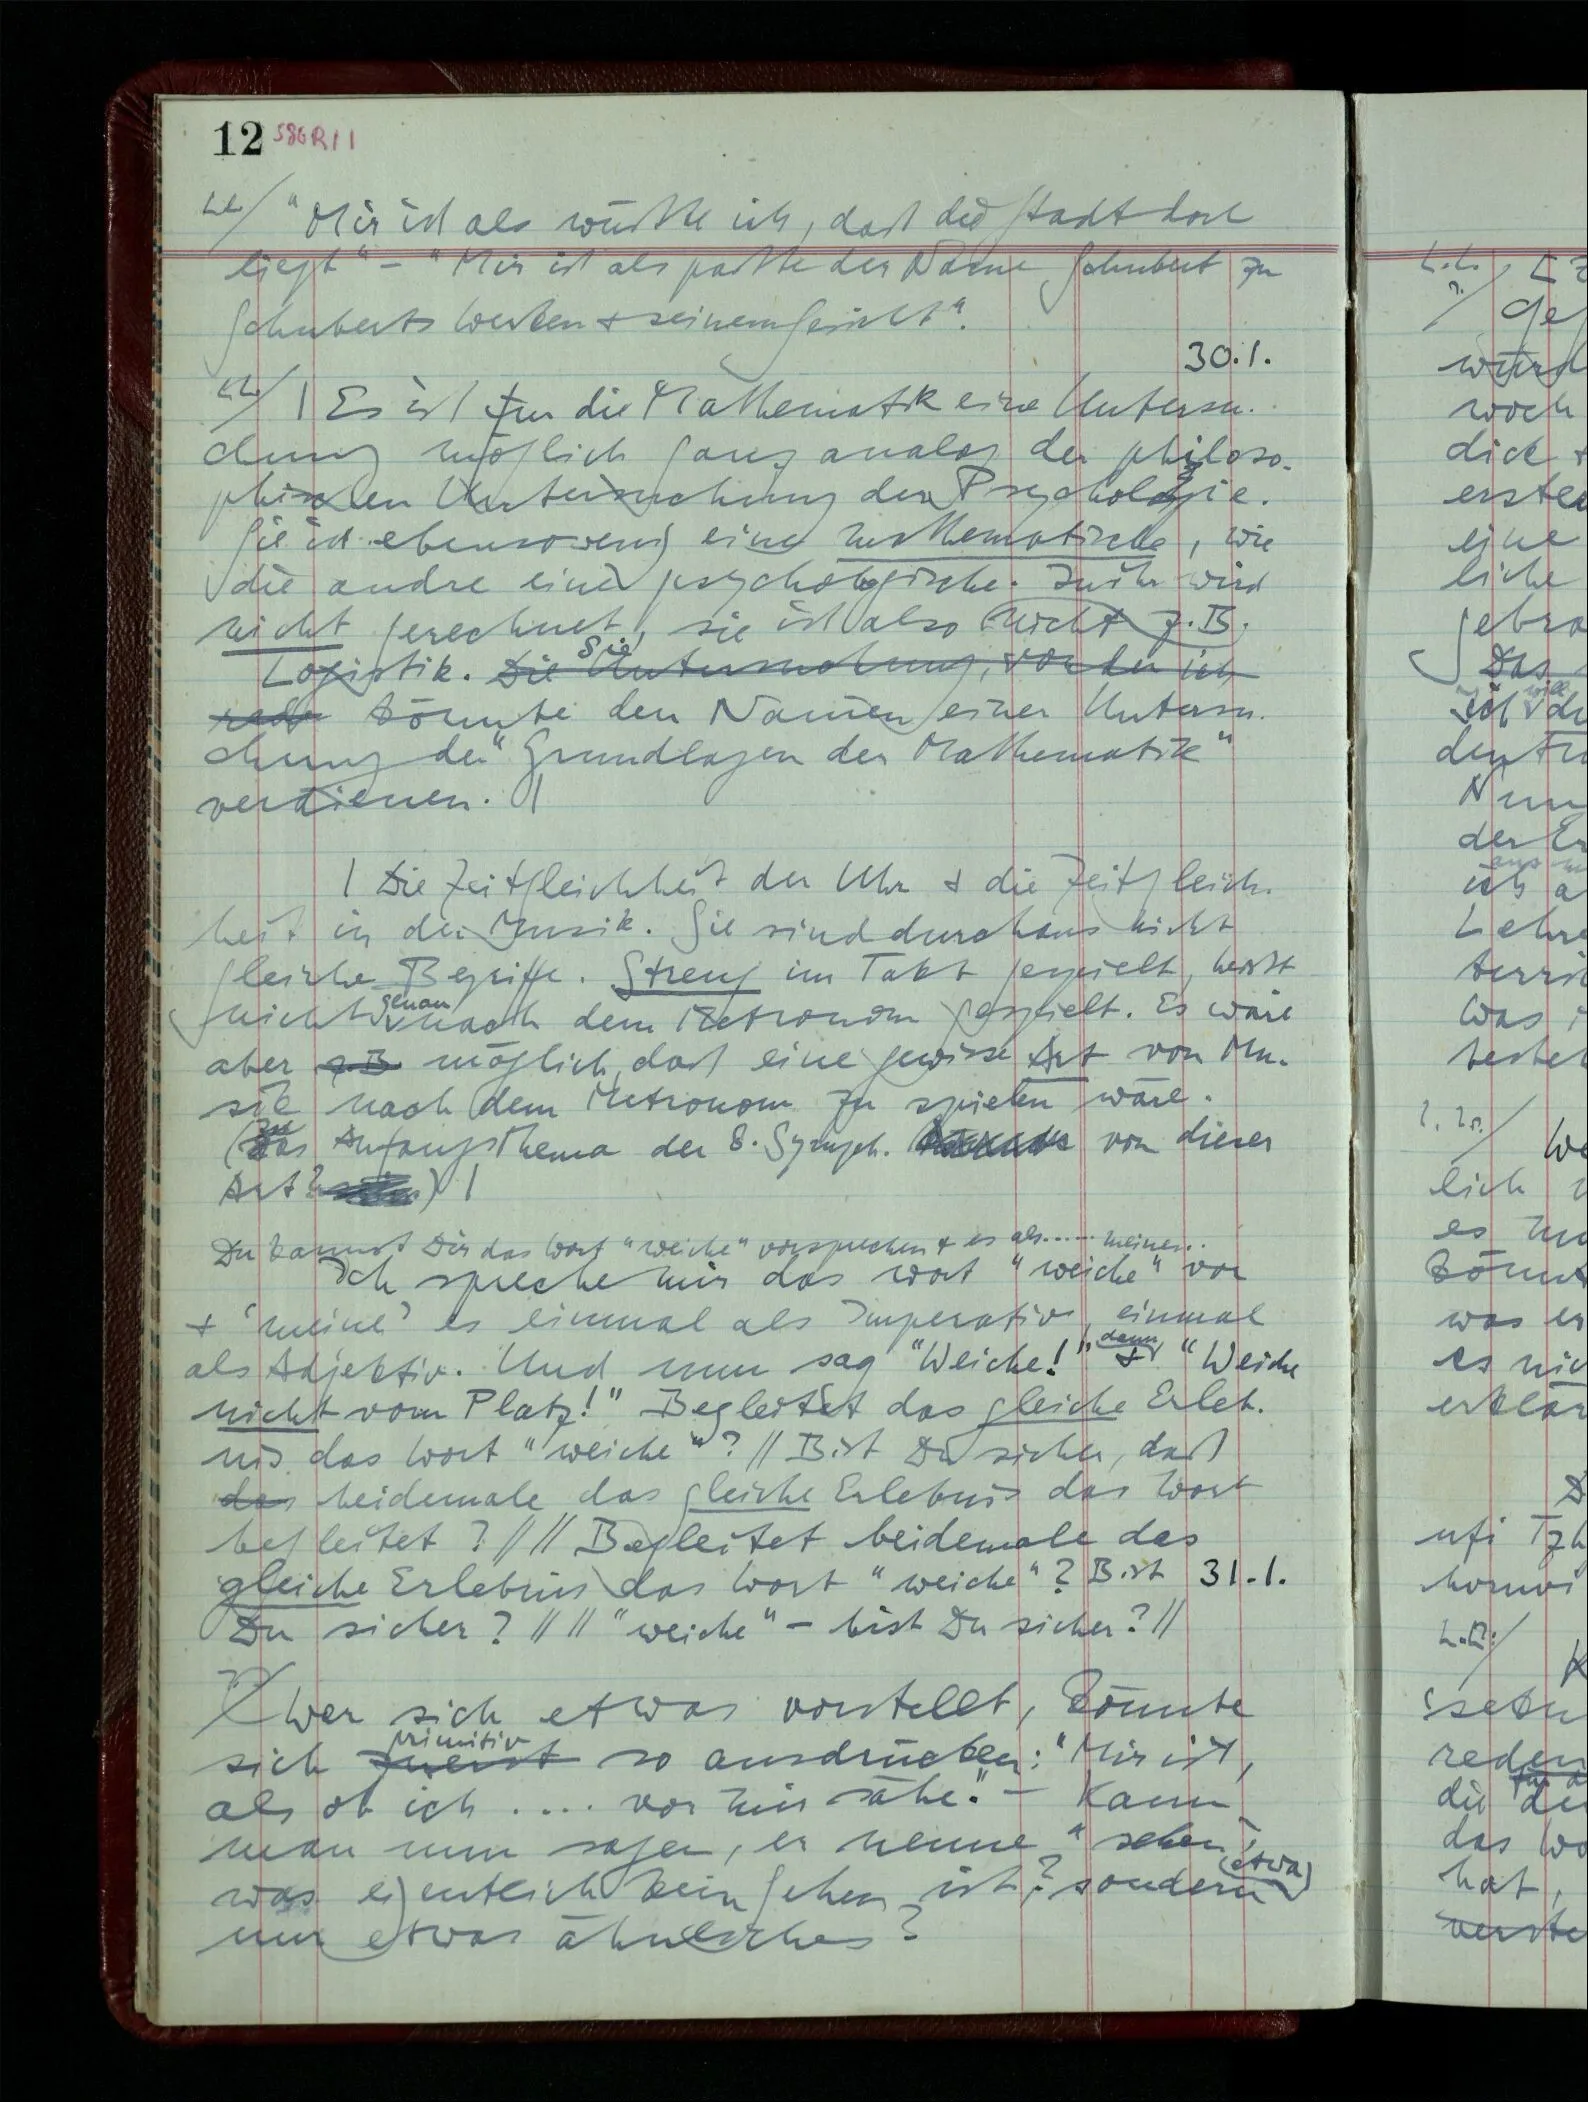 12
"Mir ist als wüßte ich, daß die Stadt dort
liegt" – "Mir ist als paßte der Name Schubert zu
Schuberts Werken & seinem Gesicht".
30.1.
| Es ist für die Mathematik eine Untersu-
chung möglich ganz analog der philoso-
phischen Untersuchung der Psychologie.
Sie ist ebensowenig eine mathematische, wie
die andre eine psychologische. In ihr wird
nicht gerechnet, sie ist also nicht z.B.
Logistik. Die Untersuchung, von der ich
Sie
rede könnte den Namen einer Untersu-
chung der "Grundlagen der Mathematik"
verdienen. |
| Die Zeitgleichheit der Uhr & die Zeitgleich-
heit in der Musik. Sie sind durchaus nicht
gleiche Begriffe. Streng im Takt gespielt, heißt
nicht genau nach dem Metronom gespielt. Es wäre
aber z.B. möglich, daß eine gewisse Art von Mu-
sik nach dem Metronom zu spielen wäre.
(Das Anfangsthema der 8. Symph. von dieser
Art?) |
Du kannst Dir das Wort "weiche" vorsprechen & es als ..... meinen..
Ich spreche mir das Wort "weiche" vor
& 'meine' es einmal als Imperativ, einmal
als Adjektiv. Und nun sag "Weiche!" & dann "Weiche
nicht vom Platz!" Begleitet das gleiche Erleb-
nis das Wort "weiche"? // Bist Du sicher, daß
das beidemale das gleiche Erlebnis das Wort
begleitet? // // Begleitet beidemale das
gleiche Erlebnis das Wort "weiche"? Bist 31.1.
Du sicher? // // "weiche" – bist Du sicher? //
Wer sich etwas vorstellt, könnte
primitiv
sich zuerst so ausdrücken: "Mir ist,
als ob ich .... vor mir sähe." – Kann
man nun sagen, er nenne "sehen",
was eigentlich kein Sehen ist? sondern (etwa)
nur etwas ähnliches?